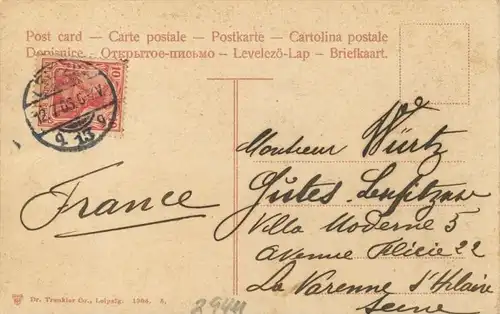 Post card – Carte postale – Postkarte – Cartolina postale
Dopisnice – Открытое-письмо – Levelező-Lap – Briefkaart.
10
9 13
Monsieur Würtz
France
Villa Moderne 5
Avenue Félicie 22
La Varenne S'Hilaire
Seine
Dr. Trenkler Co., Leipzig. 1904. A.
2944